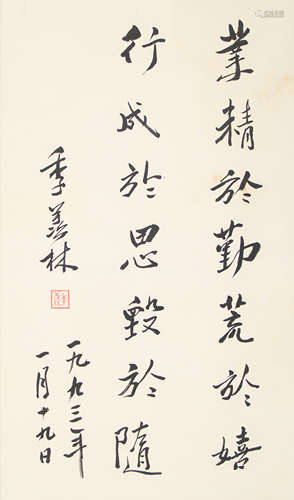 業精於勤荒於嬉
行成於思毀於隨
季羨林
一九九三年
一月十九日